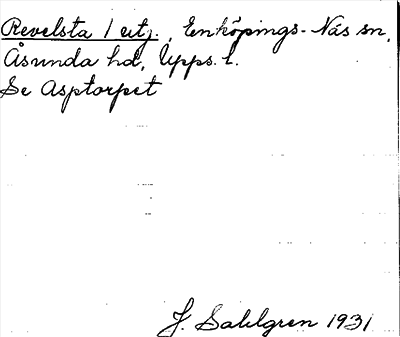 Revelsta 1 utj., Enköpings-Näs sn,
Åsunda hd, Upps. l.
Se Asptorpet
J. Sahlgren 1931